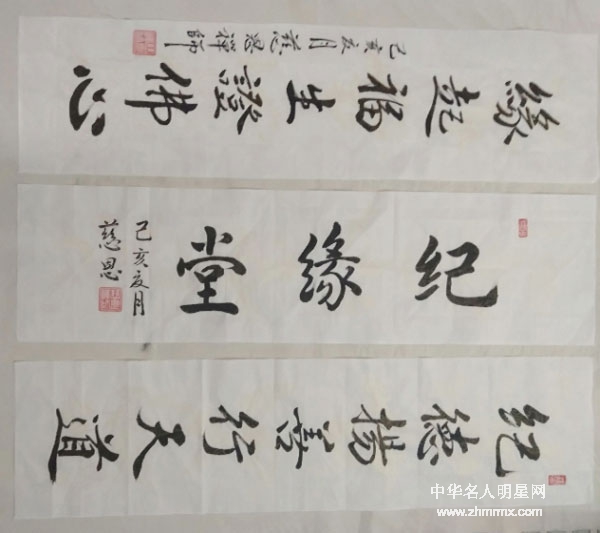 緣起福生證佛心
己亥夏月慈恩禅師
纪缘堂
己亥夏月
慈恩
纪德揚善行天道
中华名人明星网
www.zhmrmx.com